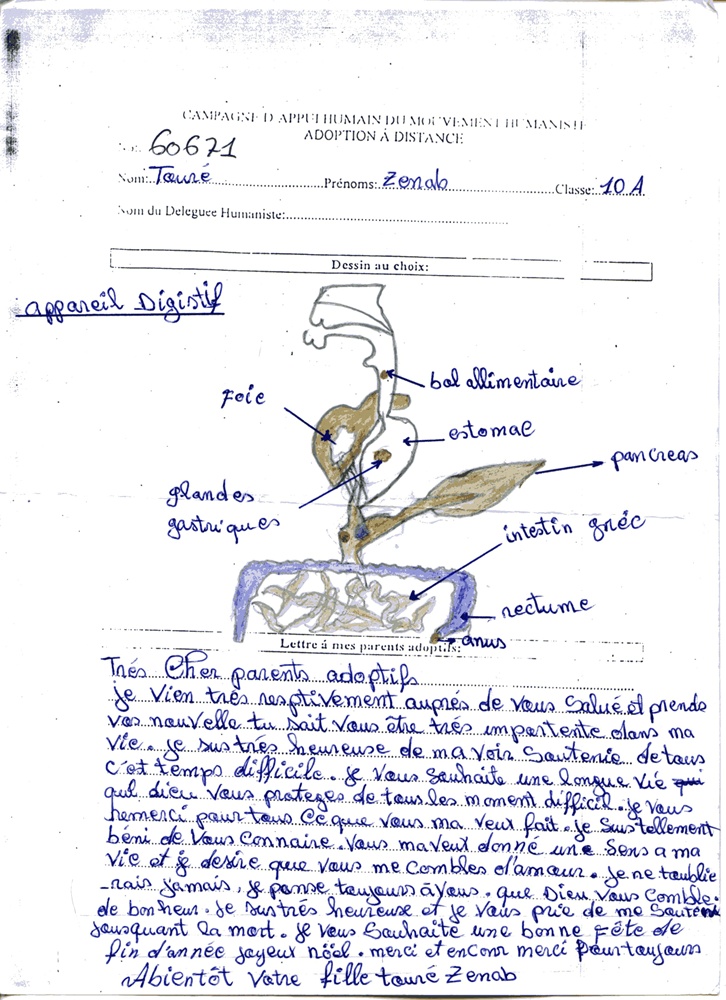 CAMPAGNE D'APPUI HUMAIN DU MOUVEMENT HUMANISTE
ADOPTION À DISTANCE
60671
Nom: Touré Prénoms: Zenab Classe: 10 A
Nom du Deleguee Humaniste:
Dessin au choix:
appareil Digistif
bol allimentaire
Foie
estomac
pancreas
glandes
gastriques
intestin gréc
rectume
anus
Lettre á mes parents adoptifs:
Trés Cher parents adoptifs
je Vien très resptivement auprés de Vous Salué et prende
vos nouvelle tu sait Vous être trés impertente dans ma
Vie. je sus trés heureuse de ma voir Soutenie de tous
c'et temps difficile. je Vous Souhaite une longue Vie qui
que dieu Vous proteges de tous les moment difficil. je Vous
remerci pour tous Ce que Vous ma Veux fait. je Suis tellement
béni de Vous Connaire. Vous ma veux donné une Sens a ma
Vie et je desire que Vous me Combles d'amour. je ne toublie
-rais jamais. je panse toujours à Vous. que Dieu Vous Comble.
de bonheur. je sus trés heureuse et je Vous prie de me Soutenir
jousquant la mort. je Vous Souhaite une bonne fête de
fin d'année joyeux nöel. merci et encour merci pour toujours
Abientôt Votre fille touré Zenab